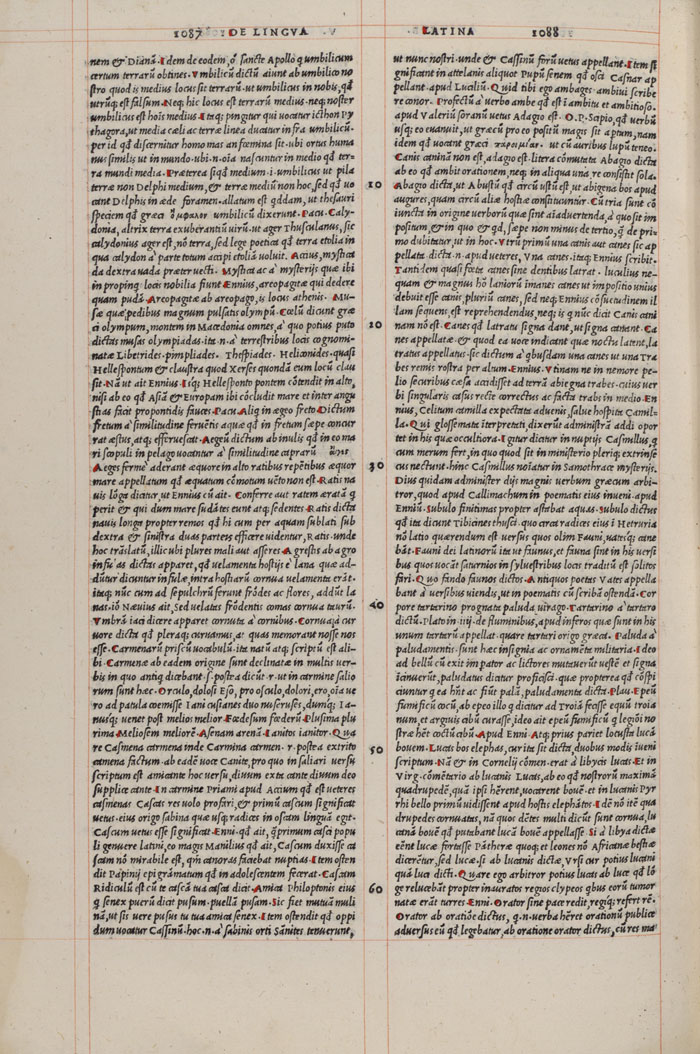 1087 DE LINGVA
nem & Dianā. Idem de eodem, ô sancte Apollo q umbilicum
certum terrarū obtines. Vmbilicū dictū aiunt ab umbilico no
stro quod is medius locus sit terrarū. ut umbilicus in nobis, qđ
utrūq; est falsum. Neq; hic locus est terrarū medius. neq; noster
umbilicus est hoīs medius. Itaq; pingitur qui uocatur
thagora, ut media cæli ac terræ linea ducatur infra umbilicū.
per id qđ discernitur homo mas an fœmina sit. ubi ortus huma
nus similis ut in mundo. ubi. n. oīa nascuntur in medio qđ ter-
ra mundi media. Præterea siqđ medium. i. umbilicus ut pila
terræ non Delphi medium, & terræ medium non hoc, sed qđ uo
cant Delphis in æde foramen. allatum est qddam, ut thesauri
speciem qđ græci umbilicū dixerunt. Pacu. Caly-
donia, altrix terra exuberantiū uirū. ut ager Thusculanus, sic
calydonius ager est, nō terra, sed lege poetica qđ terra etolia in
qua calydon a' parte totam accipi etoliā uoluit. Accius, mystica
da dextra uada præteruecti. Mystica ac a' mysterijs quæ ibi
in propinq; locis nobilia fiunt. Ennius, areopagitæ qui dedere
quam pudā. Areopagitæ ab areopago, is locus athenis. Mu-
sæ quæ pedibus magnum pulsatis olympū. Cœlū dicunt græ
ci olympum, montem in Macedonia omnes, a' quo potius puto
dictas musas olympiadas. ita. n. a' terrestribus locis cognomi-
natæ Liberides. pimpliades. Thespiades. Heliconides. quasi
Hellespontum & claustra quod Xerses quondā eum locū clau
sit. Nā ut ait Ennius. Isq; Hellesponto pontem cōtendit in alto,
nisi ab eo qđ Asiā & Europam ibi cōcludit mare et inter angu
stias facit propontidis fauces. Pacu. Aliq in ægeo freto. Dictum
fretum a' similitudine feruētis aquæ qđ in fretum sæpe concur
rat æstus, atq; efferuescat. Aegeū dictum ab insulis qđ in eo ma
ri scopuli in pelago uocantur a' similitudine caprarū
Aeges ferme' aderant æquore in alto ratibus repētibus æquor
mare appellatum qđ æquatum cōmotum uēto non est. Ratis na
uis lōga dicatur, ut Ennius cū ait. Conferre aut ratem æratā q
perit & qui dum mare sudātes eunt atq; sedentes. Ratis dicta
nauis longa propter remos qđ hi cum per aquam sublati sub
dextra & sinistra duas parteis efficere uidentur, Ratis. unde
hoc trāslatū, illic ubi plures mali aut asseres. Agrestis ab agro
insulas dictas apparet, qđ uelamenta hostijs e' lana quæ ad-
dūtur dicuntur insulæ. intra hostiarū cornua uelamenta erāt.
itaq; nūc cum ad sepulchrū ferunt frōdes ac flores, addūt la
nas. iō Næuius ait, Sed uelatas frōdentis comas cornua taurū.
Vmbrā iaci dicere apparet cornuta a' cornibus. Cornua a' cur
uore dicta qđ pleraq; curuamus, a: quas memorant nosse nos
esse. Carmenarū priscū uocabulū. ita natū atq; scriptū est ali-
bi. Carmenæ ab eadem origine sunt declinatæ in multis uer-
bis in quo antiq dicebant. s. postea dicūt. r. ut in carmine salio
rum sunt hæc. Orculo, dolosi Eso, pro osculo, dolori, ero, oīa ue
ro ad patula coemisse Iani cusianes duo nuseruses, dunq; Ia-
nusq; uenet post melios melior. Fœdesum fœderū. Plusima plu
rima. Meliosem meliorē. Asenam arenā. Ianitos ianitor. Qua
re Casmena carmena inde Carmina carmen. r. postea extrito
camena factum. ab eadē uoce Canite, pro quo in saliari uersu
scriptum est amicante hoc uersu, diuum exta cante diuum deo
supplice cante. In carmine Priami apud Accium qđ est ueteres
casmenas Cascas res uolo profari, & primū cascum significat
uetus. eius origo sabina quæ usq; radices in oscam linguā egit.
Cascum uetus esse significat. Enni. qđ ait, q̃primum casci popu
li genuere latini, eo magis Manilius qđ ait, Cascum duxisse ca
scam nō mirabile est, qn canoras faciebat nuptias. Item osten
dit Papinij epigrāmatum qđ in adolescentem fecerat. Cascam
Ridiculū est cū te cascā tua casca dicit. Amica Philoptonis eius
q senex puerū dicit pusum. puellā pusam. Sic fiet mutuā muli
nā, ut sis uere pusus tu tua amica senex. Item ostendit qđ oppi
dum uocatur Cassinū. hoc. n. a' sabinis orti Sānites tenuerunt,

LATINA 1088
ut nunc nostri. unde & Cassinū forū uetus appellant. Item si
gnificant in attelanis aliquot Pupū senem qđ osci Casnar ap
pellant. apud Luciliū. Quid tibi ego ambages ambiui scribe
re conor. Profectū a' uerbo ambe qđ est ī ambitu et ambitioso.
apud Valeriū soranū uetus Adagio est. O. P. Scipio, qđ uerbū
usq; eo euanuit, ut græcū pro eo positū magis sit aptum, nam
idem qđ uocant græci . ut cū auribus lupū teneo.
Canis caninā non est, adagio est. litera cōmutata Abagio dicta
ab eo qđ ambit orationem, neq; in aliqua una re consistit sola.
10 Abagio dicta, ut Abustū qđ circū ustū est, ut abigena bos apud
augures, quam circū aliæ hostiæ constituuntur. Cū tria sunt cō
iuncta in origine uerborū quæ sint aīaduertenda, a' quo sit im
positum, & in quo & qđ, sæpe non minus de tertio, q̃ de pri-
mo dubitatur, ut in hoc. Vtrū primū una canis aut canes sic ap
pellata dicta. n. apud ueteres, Vna canes. itaq; Ennius scribit.
Tantidem quasi fœta canes sine dentibus latrat. luculius ne-
quam & magnus hō laniorū imanes canes ut impositio unius
debuit esse canis, pluriū canes, sed neq; Ennius cōsuetudinem il
lam sequens, est reprehendendus, neq; is q nūc dicit Canis cani
20 nam nō est. Canes qđ latratu signa dant, ut signa canant. Ca
nes appellatæ. & quod ea uoce indicant quæ noctu latent, la
tratus appellatus. sic dictum a' qbusdam una canes ut una tra
bes remis rostra per altum. Ennius. Vtinam ne in nemore pe-
lio securibus cæsa accidisset ad terrā abiegna trabes. cuius uer
bi singularis casus recte correctus ac facta trabs in medio. En
nius, Celitum camilla expectata aduenis, salue hospita Camil-
la. Qui glossemata iterpretati dixerūt administrā addi opor
tet in his quæ occultiora. Igitur dicitur in nuptijs Camillus q
cum merum fert, in quo quod sit in ministerio pleriq; extrinse
30 cus nectunt. hinc Casmillus noīatur in Samothrace mysterijs.
Dius quidam administer dijs magnis uerbum græcum arbi-
tror, quod apud Callimachum in poematis eius inueni. apud
Enniū. Subulo finitimas propter astabat aquas. Subulo dictus
qđ ita dicunt Tibicines thusci. quo circa radices eius ī Hetruria
nō latio quærendum est uersus quos olim Fauni, uatesq; cane
bāt. Fauni dei latinorū ita ut faunus, et fauna sint in his uersi
bus quos uocāt saturnios in syluestribus locis traditū est solitos
fari. Quo fando faunos dictos. Antiquos poetas Vates appella
bant a' uersibus uiendis, ut in poematis cū scribā ostendā. Cor
40 pore tartarino prognata paluda uirago. Tartarino a' tartaro
dictū. Plato in. iiij. de fluminibus, apud inferos quæ sunt in his
unum tartarū appellat. quare tartari origo græca. Paluda a'
paludamentis. sunt hæc insignia ac ornamēta militaria. Ideo
ad bellū cū exit imperator ac lictores mutauerūt uestē et signa
icinuerūt, paludatus dicitur profisci. quæ propterea qđ cōspi
ciuntur q ea hūt ac fiūt palā, paludamenta dicta. Plau. Epeū
fumificū cocū, ab epeo illo q dicitur ad Troiā fecisse equū troia
num, et arguis cibū curasse, ideo ait epeū fumificū q legiōi no
stræ hēt coctū cibū. Apud Enni. Atq; prius pariet locusta lucā
50 bouem. Lucas bos elephas, cur ita sit dicta, duobus modis īueni
scriptum. Nā & in Cornelij cōmen. erat a' libycis lucas. Et in
Virg. cōmētario ab lucanis Lucas, ab eo qđ nostrorū maximā
quadrupedē, quā ipsi hērent, uocarent bouē. et in lucanis Pyr
rhi bello primū uidissent apud hostis elephātos. Idē nō itē qua
drupedes cornutas, nā quos dētes multi dicūt sunt cornua, lu
canā bouē qđ putabant lucā bouē appellasse. Si a' libya dictæ
eēnt lucæ fortasse Pātheræ quoq; et leones nō Africanæ bestiæ
dicerētur, sed lucæ. si ab lucanis dictæ, Vrsi cur potius lucani
quā luci dicti. Quare ego arbitror potius lucas ab luce qđ lō
60 ge relucebāt propter inauratos regios clypeos qbus eorū tumor
natæ erāt turres. Enni. Orator sine pace redit, regiq; refert rē.
Orator ab oratiōe dictus, q. n. uerba hēret orationū publice
aduersus eū qđ legebatur, ab oratione orator dictus, cū res ma